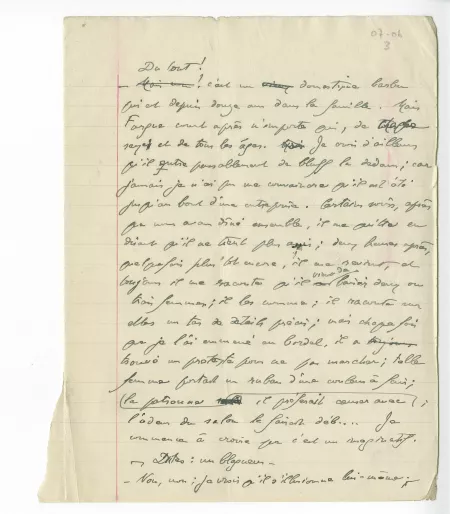 07-04
3
Du tout!
– Mais non! c'est un vieux domestique barbu
qui est depuis douze ans dans la famille. Mais
Fargue court après n'importe qui, de
sexe et de tous les âges. Je crois d'ailleurs
qu'il entre passablement de bluff là dedans; car
jamais je n'ai pu me convaincre qu'il ait été
jusqu'au bout d'une entreprise. Certains soirs, après
que nous avons dîné ensemble, il me quitte en
disant qu'il ne tient plus ; deux heures après,
quelquefois plus tôt encore, il me revient, et
toujours il me raconte qu'il vient de baiser deux ou
trois femmes; il les nomme; il raconte sur
elles un tas de détails précis; mais chaque fois
que je l'ai emmené au bordel, il a toujours
trouvé un prétexte pour ne pas marcher; telle
femme portait un ruban d'une couleur à fuir;
la patronne il préférait causer avec;
l'odeur du salon le faisait déb.... Je
commence à croire que c'est un imaginatif.
– Dites: un blagueur –
– Non, non; je crois qu'il s'illusionne lui-même;